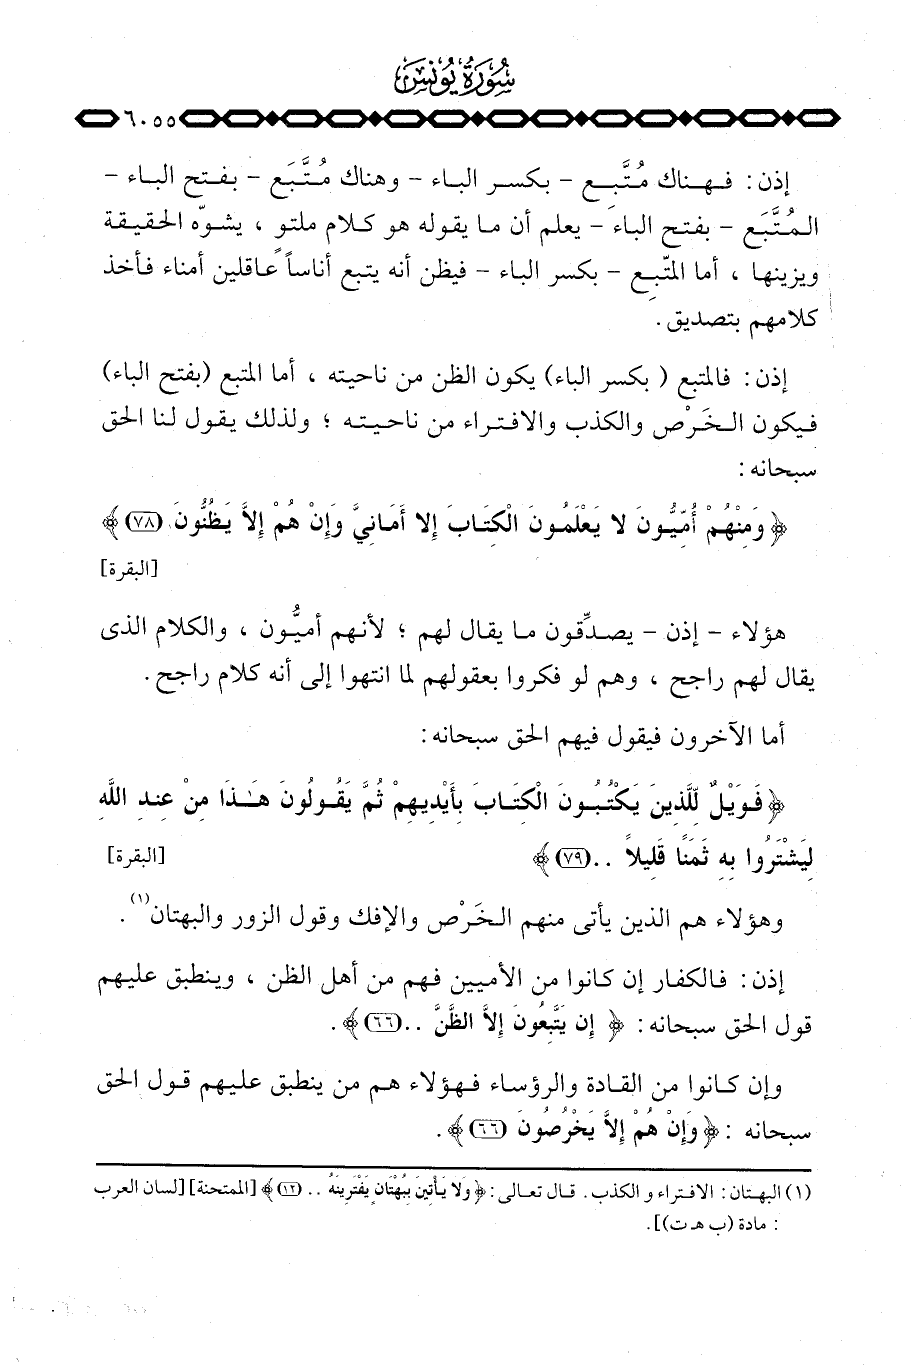 سُورَةُ يُونسَ
٦٠٥٥
إذن : فـهـناك مُتَّبِـع – بكسـر البـاء – وهناك مُـتَّبَع – بـفتح البـاء –
المُـتَّبَع – بفتح الباء – يعلم أن ما يقوله هو كلام ملتو ، يشوّه الحقيقة
ويزينها ، أما المتّبِع – بكسر الباء – فيظن أنه يتبع أناساً عاقلين أمناء فأخذ
كلامهم بتصديق .
إذن : فالمتبع ( بكسر الباء) يكون الظن من ناحيته ، أما المتبع (بفتح الباء)
فيكون الـخَرْص والكذب والافتـراء من ناحيـتـه ؛ ولذلك يقول لنا الحق
سبحانه :
﴿ وَمِنْهُمْ أُمِّيُّونَ لا يَعْلَمُونَ الْكِتَابَ إِلا أَمَانِيَّ وَإِنْ هُمْ إِلاَّ يَظُنُّونَ (٧٨) ﴾
[البقرة]
هؤلاء – إذن – يصدِّقون ما يقال لهم ؛ لأنهم أميُّون ، والكلام الذى
يقال لهم راجح ، وهم لو فكروا بعقولهم لما انتهوا إلى أنه كلام راجح .
أما الآخرون فيقول فيهم الحق سبحانه :
﴿ فَوَيْلٌ لِّلَّذِينَ يَكْتُبُونَ الْكِتَابَ بِأَيْدِيهِمْ ثُمَّ يَقُولُونَ هَـٰذَا مِنْ عِندِ اللَّهِ
لِيَشْتَرُوا بِهِ ثَمَنًا قَلِيلاً .. (٧٩) ﴾ [البقرة]
وهؤلاء هم الذين يأتى منهم الـخَرْص والإفك وقول الزور والبهتان(١) .
إذن : فالكفار إن كانوا من الأميين فهم من أهل الظن ، وينطبق عليهم
قول الحق سبحانه : ﴿ إِن يَتَّبِعُونَ إِلاَّ الظَّنَّ .. (٦٦) ﴾ .
وإن كـانوا من القـادة والرؤساء فـهؤلاء هم من ينطبق عليـهم قـول الحق
سبحانه : ﴿ وَإِنْ هُمْ إِلاَّ يَخْرُصُونَ (٦٦) ﴾ .
(١) البهتان : الافتراء و الكذب . قال تعالى : ﴿ وَلا يَأْتِينَ بِبُهْتَانٍ يَفْتَرِينَهُ .. (١٢) ﴾ [الممتحنة] [لسان العرب
: مادة (ب هـ ت)] .